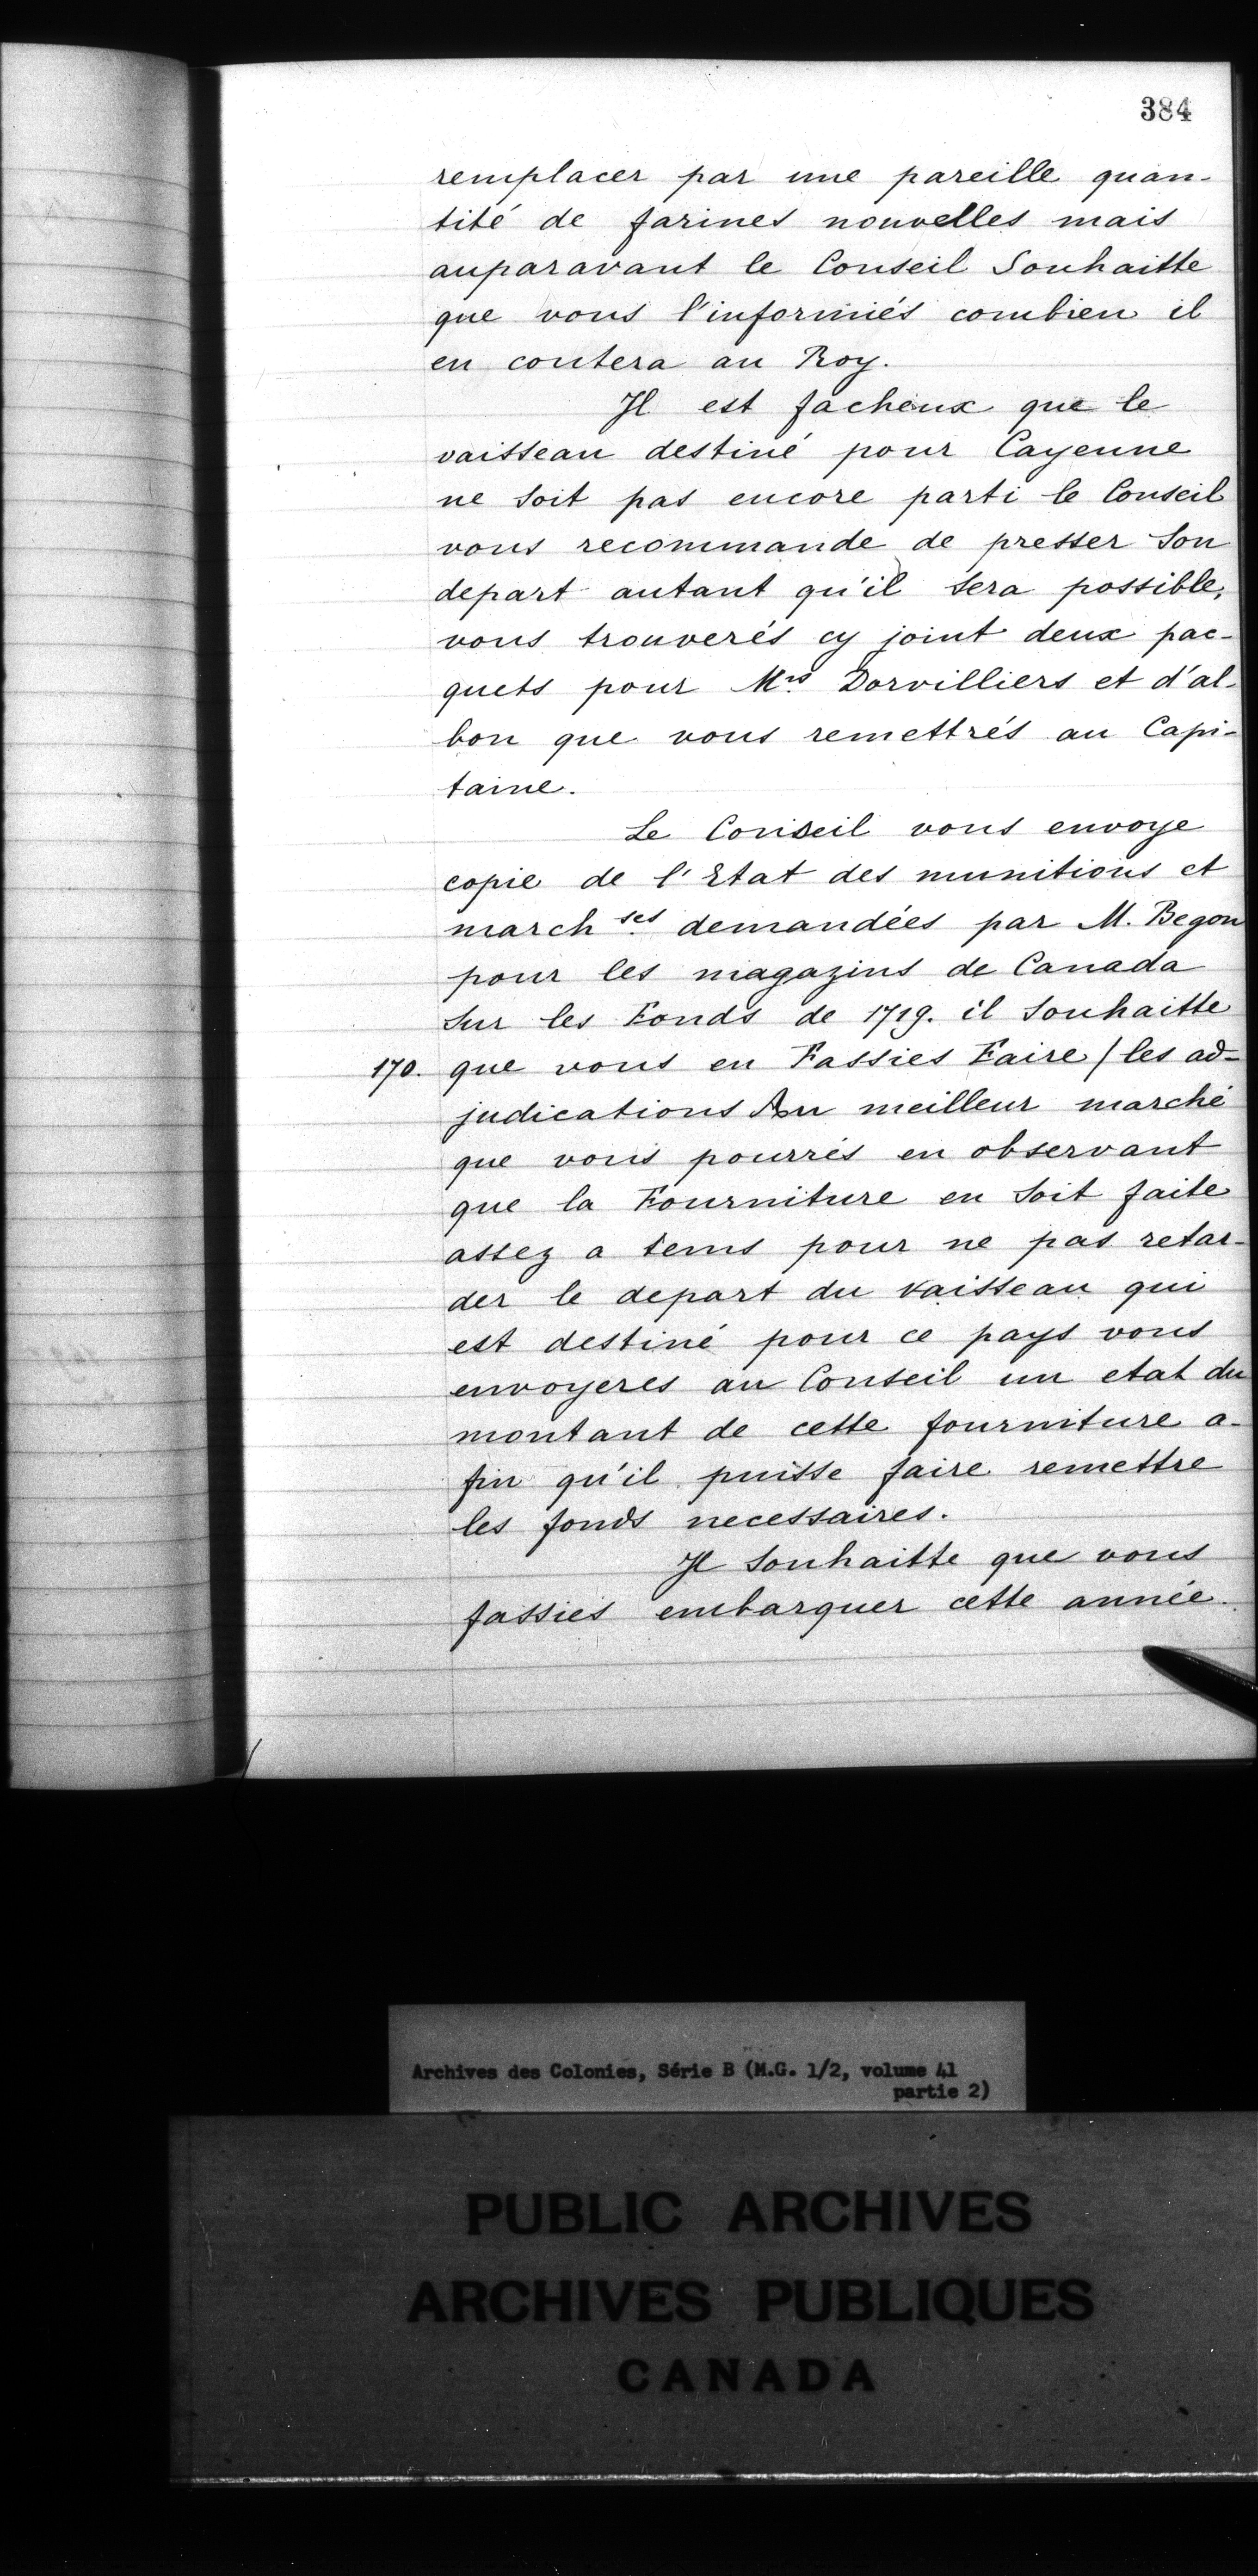 384
remplacer par une pareille quan-
tité de farines nouvelles mais
auparavant le Conseil Souhaitte
que vous l'informiés combien il
en coutera au Roy.
Il est facheux que le
vaisseau destiné pour Cayenne
ne soit pas encore parti le Conseil
vous recommande de presser Son
depart autant qu'il sera possible,
vous trouverés cy joint deux pac-
quets pour Mrs Dorvilliers et d'al-
bon que vous remettrés au Capi-
taine.
Le Conseil vous envoye
copie de l'Etat des munitions et
march ses demandées par M. Begon
pour les magazins de Canada
Sur les Fonds de 1719. il Souhaitte
170. que vous en Fassies Faire / les ad-
judications Au meilleur marché
que vous pourrés en observant
que la Fourniture en Soit faite
assez a tems pour ne pas retar-
der le depart du vaisseau qui
est destiné pour ce pays vous
envoyeres au Conseil un etat du
montant de cette fourniture a-
fin qu'il puisse faire remettre
les fonds necessaires.
Il Souhaitte que vous
fassies embarquer cette année
Archives des Colonies, Série B (M.G. 1/2, volume 41
partie 2)
PUBLIC ARCHIVES
ARCHIVES PUBLIQUES
CANADA